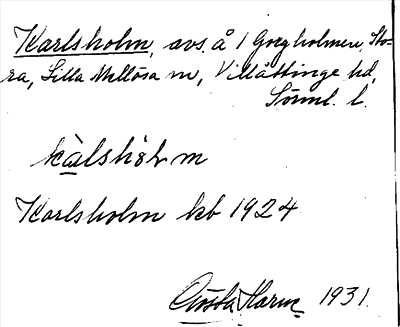 Karlsholm, avs. å 1 Gregholmen, Sto-
ra, Lilla Mellösa sn, Villåttinge hd,
Sörml. l.
kàlshòlm
Karlsholm kb 1924
Gösta Harne 1931.